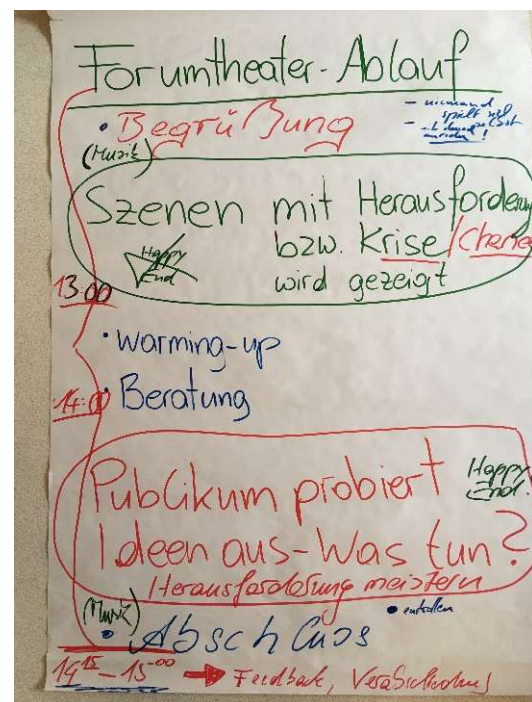 Forumtheater-Ablauf
• Begrüßung
- niemand
spielt sich
selbst
(Musik)
Szenen mit Herausforderung
bzw. Krise/Chance
wird gezeigt
Happy
End
13:00
• warming-up
14:00 • Beratung
Publikum probiert
Ideen aus-Was tun?
Happy
End
Herausforderung meistern
(Musik)
• Abschluss
14 15 - 15 00 → Feedback, Verabschiedung